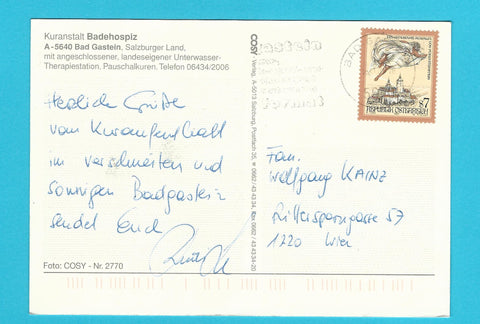 Kuranstalt Badehospiz
A-5640 Bad Gastein, Salzburger Land,
mit angeschlossener, landeseigener Unterwasser-
Therapiestation, Pauschalkuren. Telefon 06434/2006
Herzliche Grüße
vom Kuraufenthalt
im verschneiten und
sonnigen Badgastein
sendet Euch
Foto: COSY - Nr. 2770
COSY Verlag, A-5013 Salzburg, Postfach 35,
REPUBLIK ÖSTERREICH
S 7
Fam.
Wolfgang KAINZ
Rittersporngasse 57
1220 Wien